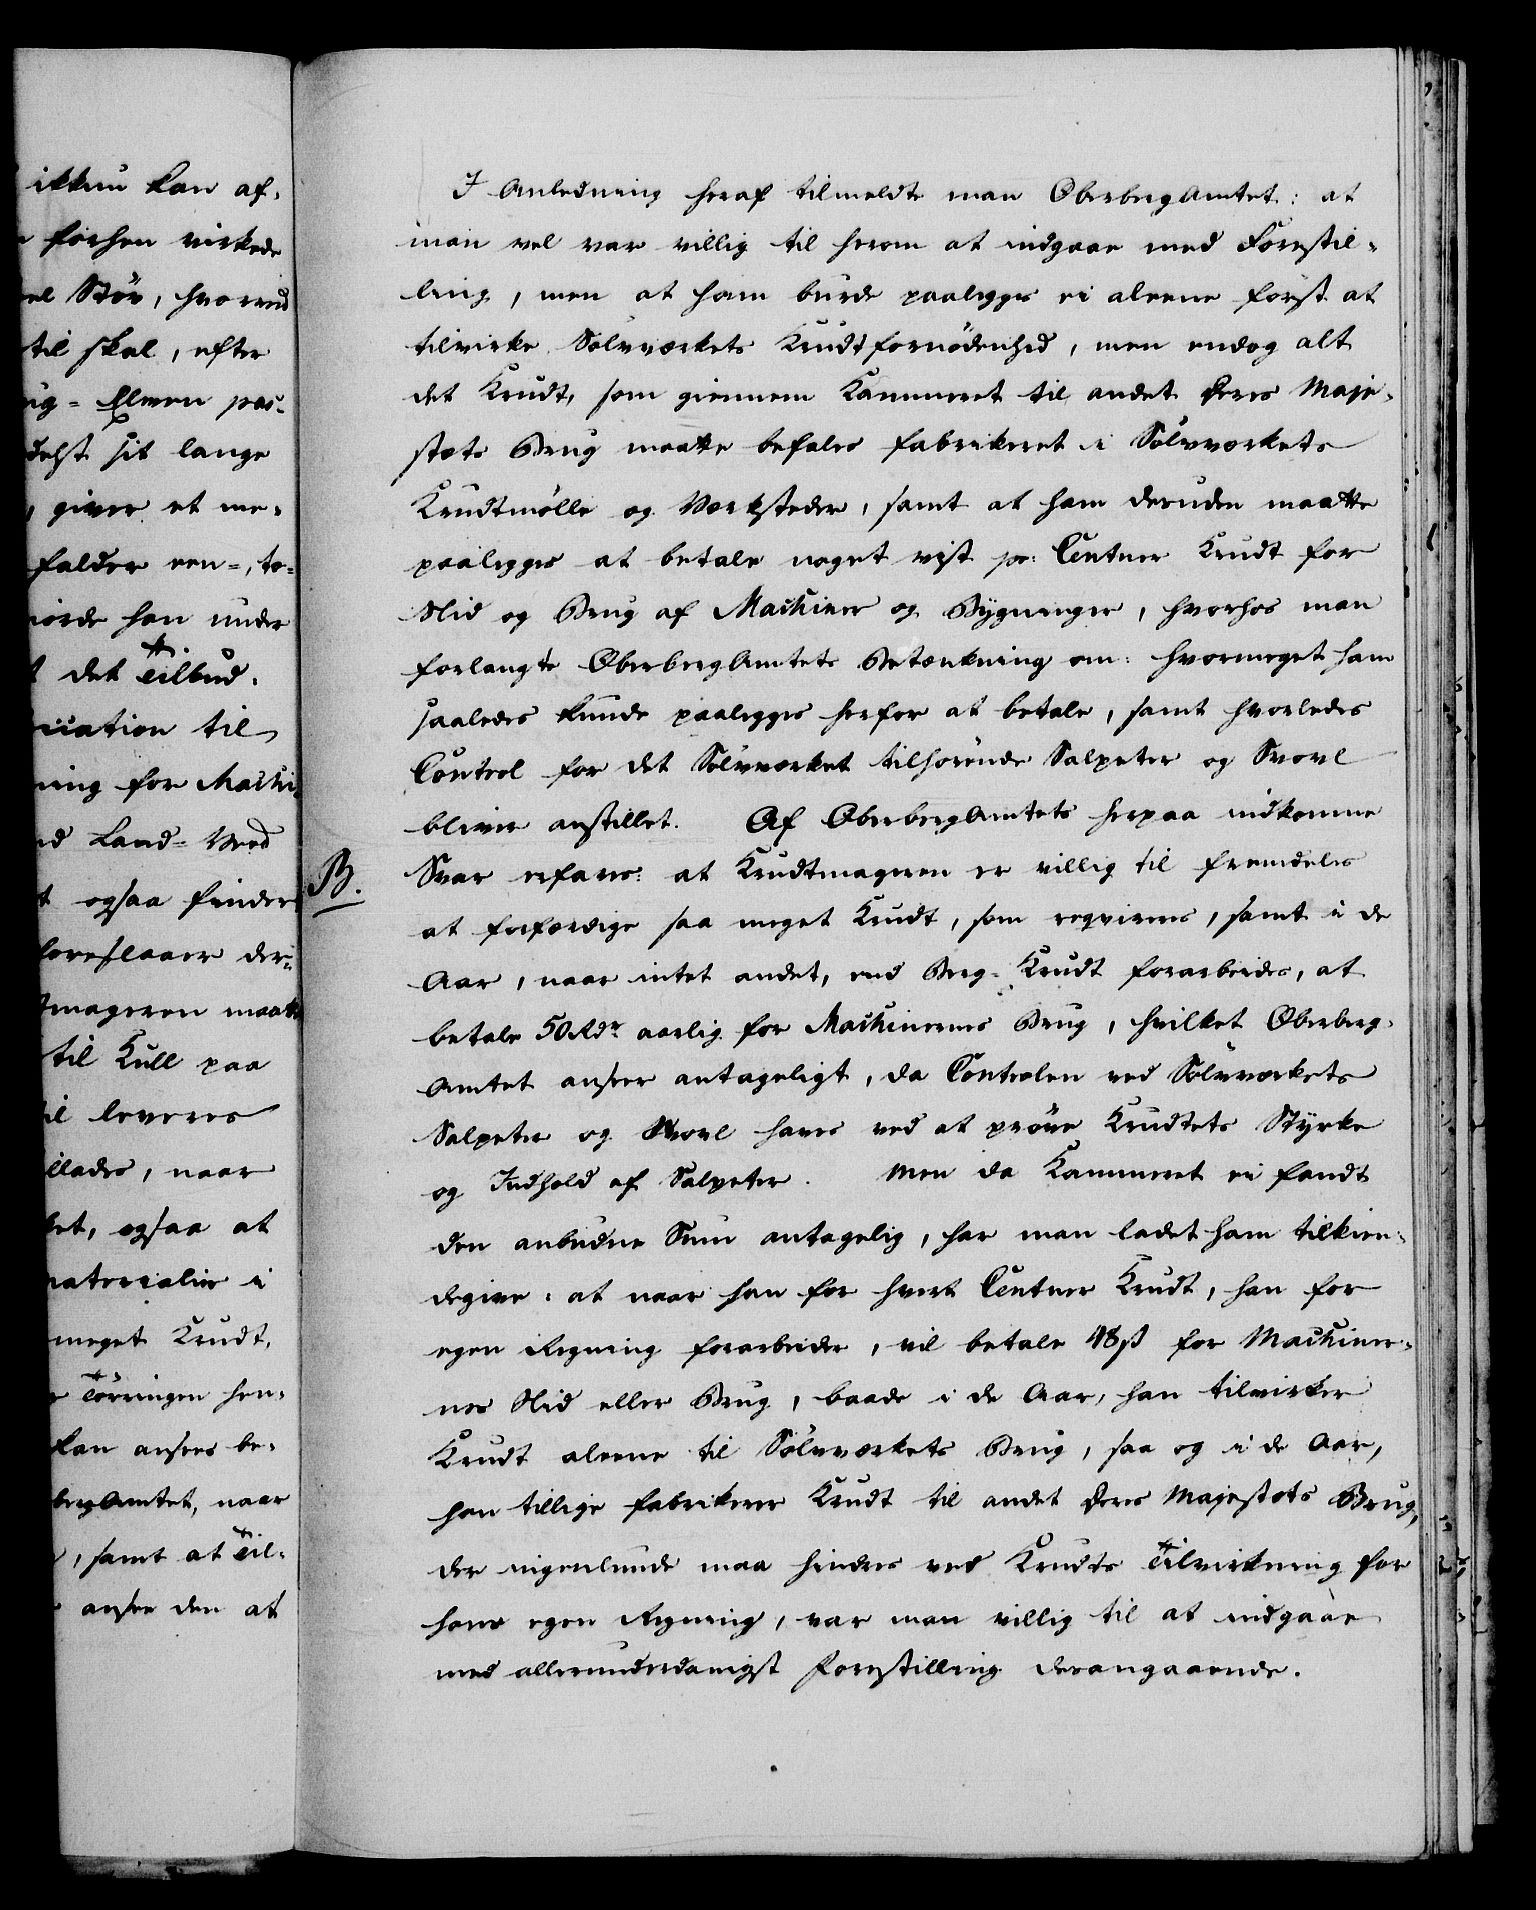 ikkun kan af-
forhen virkede
el Stöv, hvorved
til skal, efter
ug-Elven pas-
delst sit lange
, giver et me-
falder een-, to-
iorde han under
det Tilbud.
ication til
ning for Machi-
d Land-Veed
t ogsaa finder
foreslaaer der-
tmageren maatte
til Kull paa
il leveres
illades, naar
et, ogsaa at
materialier i
meget Krudt,
Törringen hen-
kan ansees be-
bergAmtet, naar
, samt at Til-
ansee den at
I Anledning heraf tilmeldte man OberbergAmtet: at
man vel var villig til herom at indgaae med Forestil-
ling, men at ham burde paalegges ei aleene först at
tilvirke Sölvværkets Krudtfornödenhed, men endog alt
det Krudt, som giennem Kammeret til andet Deres Maje-
stæts Brug maatte befales fabrikeret i Sölvværkets
Krudtmölle og Værksteder, samt at ham desuden maatte
paalegges at betale noget vist pr: Centner Krudt for
Slid og Brug af Machiner og Bygninger, hvorhos man
forlangte OberbergAmtets Betænkning om: hvormeget ham
saaledes kunde paalegges herfor at betale, samt hvorledes
Control for det Sölvværket tilhörende Salpeter og Svovl
bliver anstillet. Af OberbergAmtets herpaa indkomne
B.
Svar erfares: at Krudtmageren er villig til fremdeles
at forfærdige saa meget Krudt, som reqvireres, samt i de
Aar, naar intet andet, end Berg-Krudt forarbeides, at
betale 50 Rdr aarlig for Machinernes Brug, hvilket Oberberg-
Amtet anseer antageligt, da Controlen ved Sölvværkets
Salpeter og Svovl haves ved at pröve Krudtets Styrke
og Indhold af Salpeter. Men da Kammeret ei fandt
den anbudne Sum antagelig, har man ladet ham tilkien-
degive: at naar han for hvert Centner Krudt, han for
egen Regning forarbeider, vil betale 48 ß for Machiner-
nes Slid eller Brug, baade i de Aar, han tilvirker
Krudt aleene til Sölvværkets Brug, saa og i de Aar,
han tillige fabrikerer Krudt til andet Deres Majestæts Brug,
der ingenlunde maa hindres ved Krudts Tilvirkning for
hans egen Regning, var man villig til at indgaae
med allerunderdanigst Forestilling desangaaende.